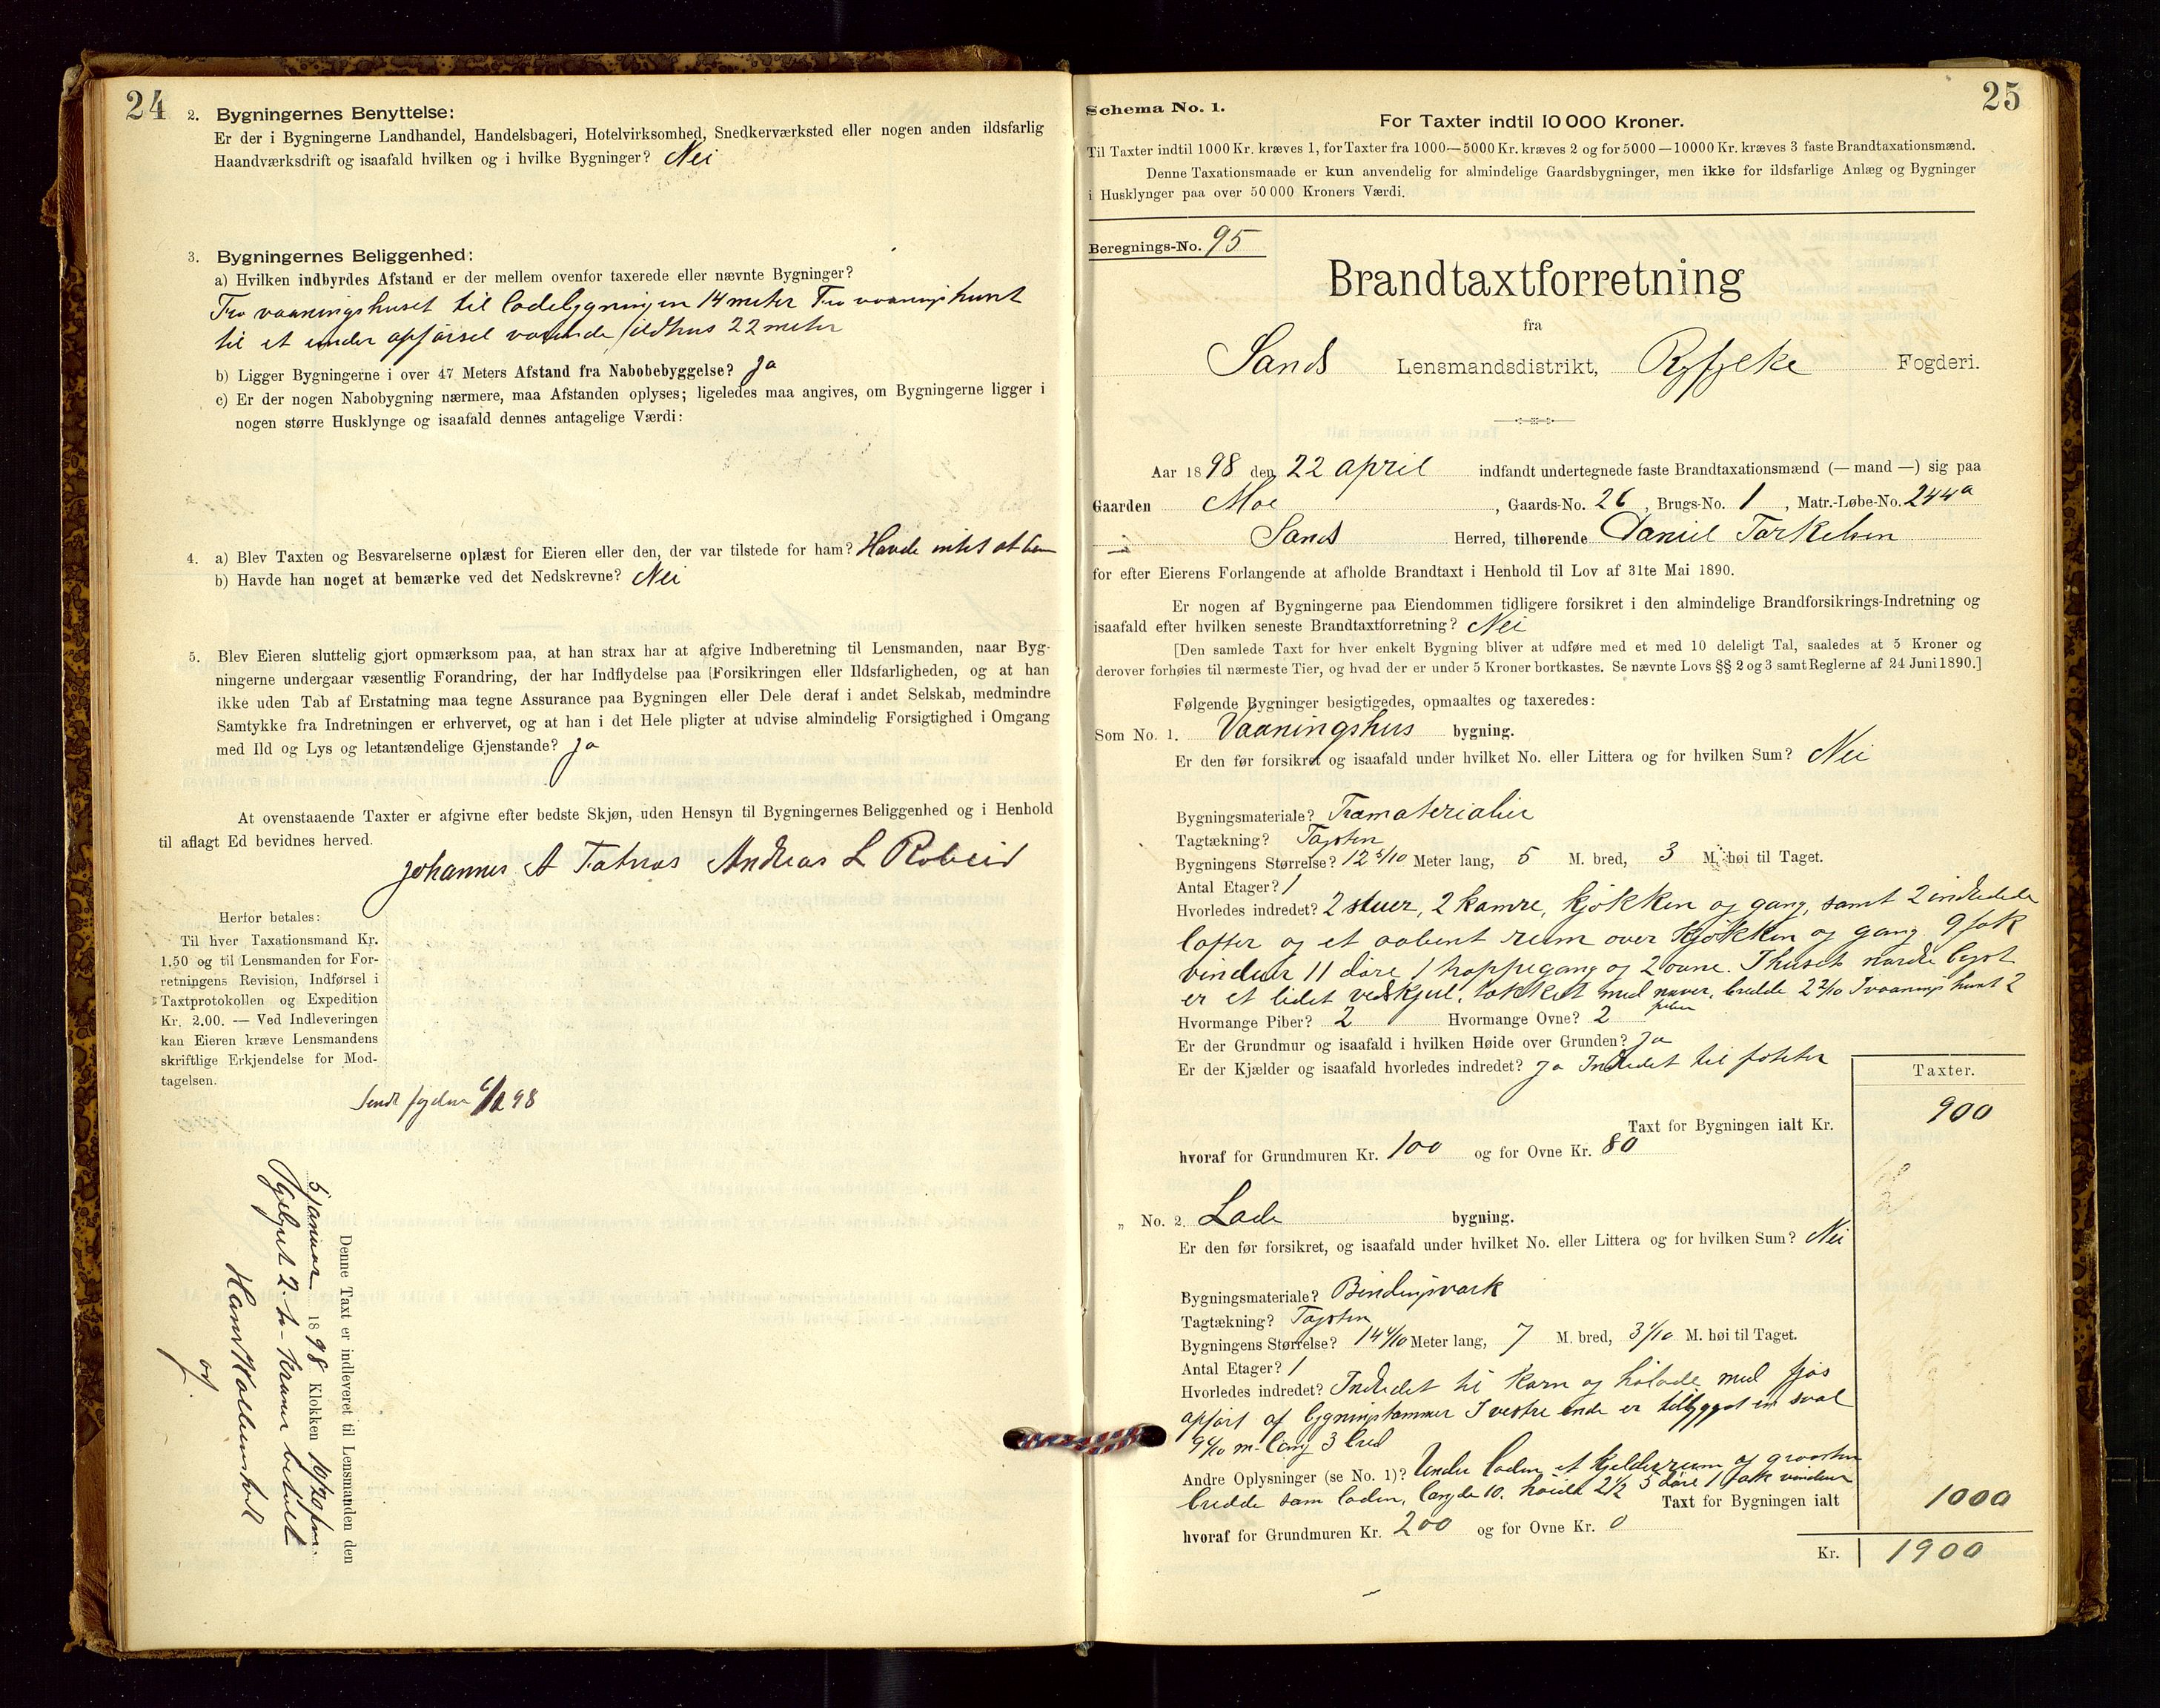 24
2. Bygningernes Benyttelse:
Er der i Bygningerne Landhandel, Handelsbageri, Hotelvirksomhed, Snedkerværksted eller nogen anden ildsfarlig
Haandværksdrift og isaafald hvilken og i hvilke Bygninger? Nei
3. Bygningernes Beliggenhed:
a) Hvilken indbyrdes Afstand er der mellem ovenfor taxerede eller nævnte Bygninger?
Fra vaaningshuset til ladebygningen 14 meter Fra vaaningshuset
til et under opførsel værende ildhus 22 meter
b) Ligger Bygningerne i over 47 Meters Afstand fra Nabobebyggelse? Ja
c) Er der nogen Nabobygning nærmere, maa Afstanden oplyses; ligeledes maa angives, om Bygningerne ligger i
nogen større Husklynge og isaafald dennes antagelige Værdi:
4. a) Blev Taxten og Besvarelserne oplæst for Eieren eller den, der var tilstede for ham? Havde intet at
b) Havde han noget at bemærke ved det Nedskrevne? Nei
5. Blev Eieren sluttelig gjort opmærksom paa, at han strax har at afgive Indberetning til Lensmanden, naar Byg-
ningerne undergaar væsentlig Forandring, der har Indflydelse paa Forsikringen eller Ildsfarligheden, og at han
ikke uden Tab af Erstatning maa tegne Assurance paa Bygningen eller Dele deraf i andet Selskab, medmindre
Samtykke fra Indretningen er erhvervet, og at han i det Hele pligter at udvise almindelig Forsigtighed i Omgang
med Ild og Lys og letantændelige Gjenstande? Ja
At ovenstaaende Taxter er afgivne efter bedste Skjøn, uden Hensyn til Bygningernes Beliggenhed og i Henhold
til aflagt Ed bevidnes herved.
Johannes A Andreas L
Herfor betales:
Til hver Taxationsmand Kr.
1.50 og til Lensmanden for For-
retningens Revision, Indførsel i
Taxtprotokollen og Expedition
Kr. 2.00. — Ved Indleveringen
kan Eieren kræve Lensmandens
skriftlige Erkjendelse for Mod-
tagelsen.
Sendt fogden 98
Denne Taxt er indleveret til Lensmanden den
5 januar 1898 Klokken
2. to - Kroner betalt
Hans
25
Schema No. 1.
For Taxter indtil 10 000 Kroner.
Til Taxter indtil 1000 Kr. kræves 1, for Taxter fra 1000—5000 Kr. kræves 2 og for 5000—10000 Kr. kræves 3 faste Brandtaxationsmænd.
Denne Taxationsmaade er kun anvendelig for almindelige Gaardsbygninger, men ikke for ildsfarlige Anlæg og Bygninger
i Husklynger paa over 50 000 Kroners Værdi.
Beregnings-No. 95
Brandtaxtforretning
fra
Sands Lensmandsdistrikt, Ryfylke Fogderi.
Aar 1898 den 22 april indfandt undertegnede faste Brandtaxationsmænd (— mand —) sig paa
Gaarden Moe, Gaards-No. 26, Brugs-No. 1, Matr.-Løbe-No. 244a
i Sands Herred, tilhørende Daniel Torkelsen
for efter Eierens Forlangende at afholde Brandtaxt i Henhold til Lov af 31te Mai 1890.
Er nogen af Bygningerne paa Eiendommen tidligere forsikret i den almindelige Brandforsikrings-Indretning og
isaafald efter hvilken seneste Brandtaxtforretning? Nei
[Den samlede Taxt for hver enkelt Bygning bliver at udføre med et med 10 deleligt Tal, saaledes at 5 Kroner og
derover forhøies til nærmeste Tier, og hvad der er under 5 Kroner bortkastes. Se nævnte Lovs §§ 2 og 3 samt Reglerne af 24 Juni 1890.]
Følgende Bygninger besigtigedes, opmaaltes og taxeredes:
Som No. 1. Vaaningshus bygning.
Er den før forsikret og isaafald under hvilket No. eller Littera og for hvilken Sum? Nei
Bygningsmateriale? Træmaterialier
Tagtækning? Tagsten
Bygningens Størrelse? 12 5/10 Meter lang, 5 M. bred, 3 M. høi til Taget.
Antal Etager? 1
Hvorledes indredet? 2 stuer, 2 kamre, kjøkken og gang, samt 2 indredede
lofter og et aabent rum over kjøkken og gang. 9 fak
vinduer 11 døre 1 trappegang og 2 ovne. I huset nordre
er et lidet vedskjul, takket med never, bredde 2 2/10 I vaaningshuset 2
piber
Hvormange Piber? 2 Hvormange Ovne? 2
Er der Grundmur og isaafald i hvilken Høide over Grunden? Ja
Er der Kjælder og isaafald hvorledes indredet? Ja Indredet til poteter
Taxter.
Taxt for Bygningen ialt Kr. 900
hvoraf for Grundmuren Kr. 100 og for Ovne Kr. 80
„ No. 2. Lade bygning.
Er den før forsikret, og isaafald under hvilket No. eller Littera og for hvilken Sum? Nei
Bygningsmateriale? Bindingsværk
Tagtækning? Tagsten
Bygningens Størrelse? 14 4/10 Meter lang, 7 M. bred, 3 1/10 M. høi til Taget.
Antal Etager? 1
Hvorledes indredet? Indredet til korn og hølade med fjøs
opført af bygningstømmer I vestre ende er tilbygget en sval
m. lang 3 bred
Andre Oplysninger (se No. 1)? Under laden et kjelderrum af graasten
bredde som laden, længde 10. høide 2 1/2 5 døre 1 fak vinduer
Taxt for Bygningen ialt 1000
hvoraf for Grundmuren Kr. 200 og for Ovne Kr. 0
Kr. 1900